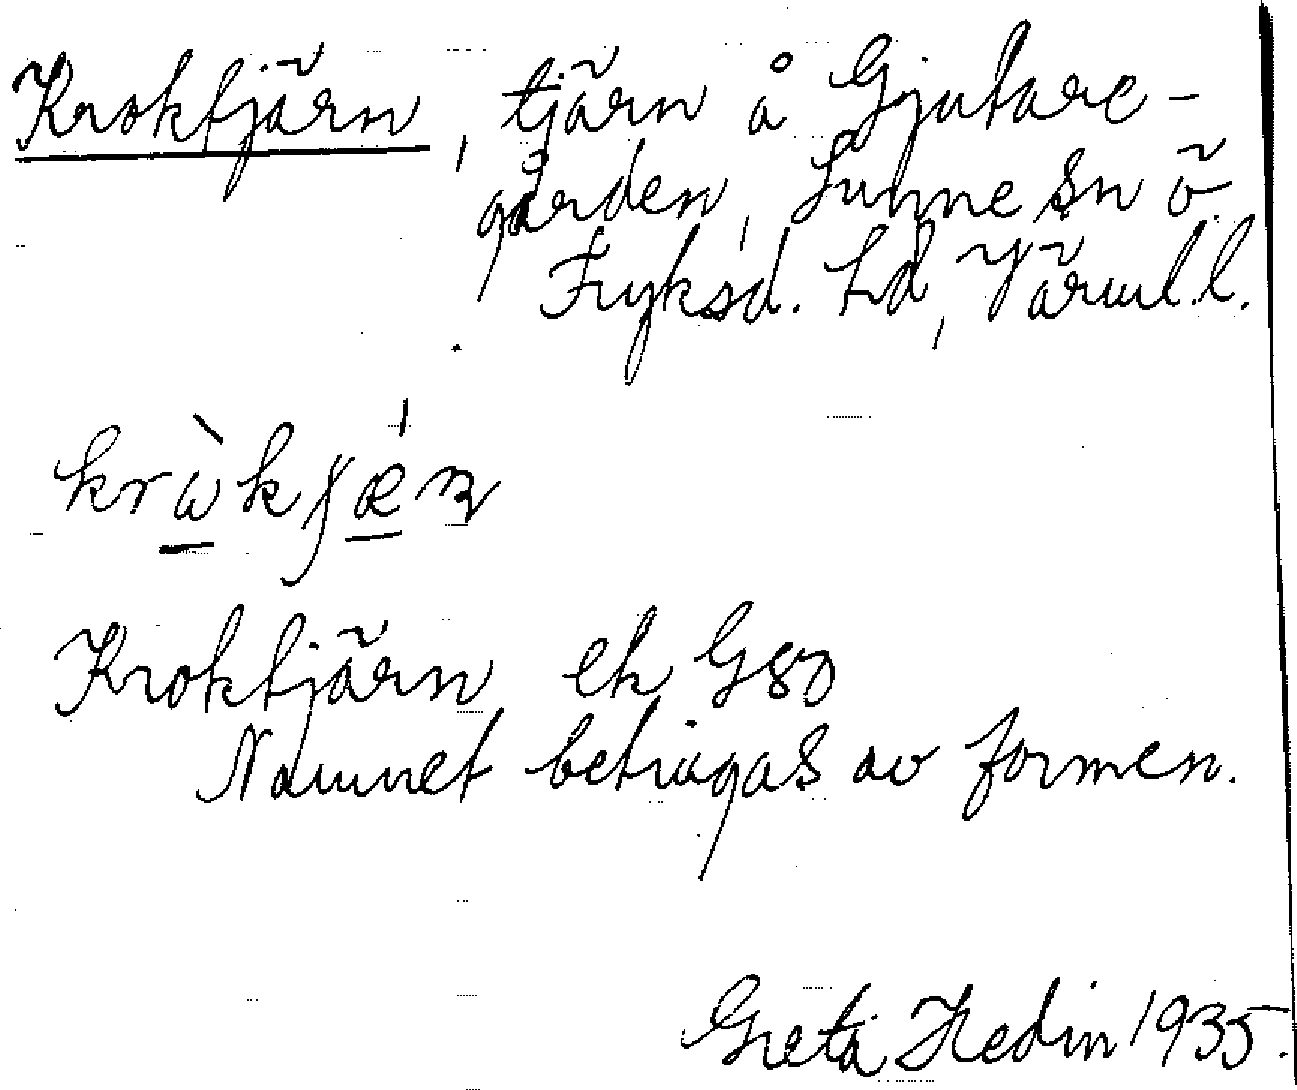 Kroktjärn, tjärn å Gjutare-
gården, Sunne sn Ö
Fryksd. hd, Värml.l.
Kroktjärn ek G80
Namnet betingas av formen.
Greta Hedin 1935.